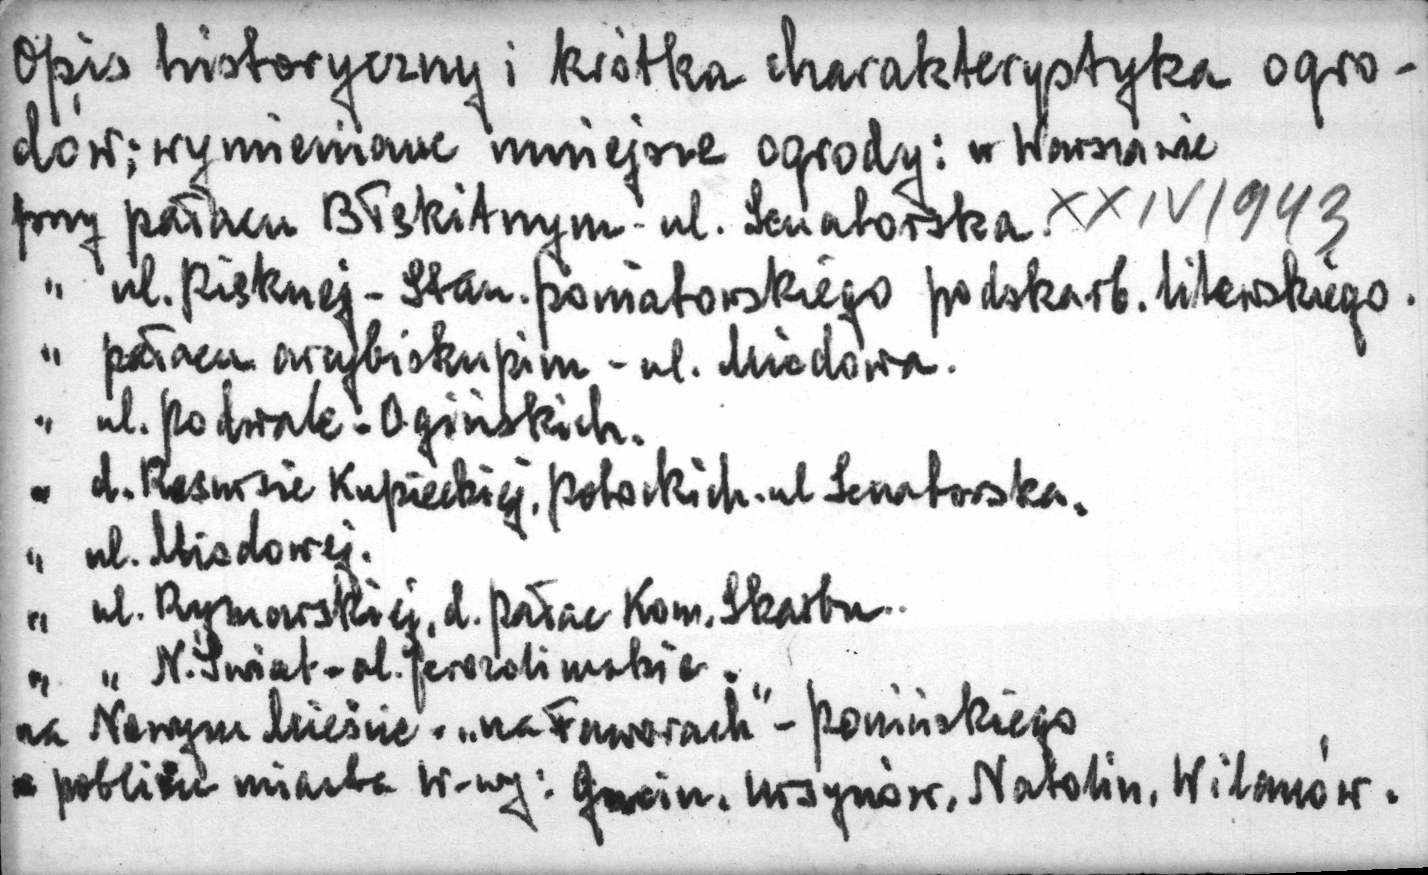 Opis historyczny i krótka charakterystyka ogro-
dów; wymieniane mniejsze ogrody: w Warszawie
przy pałacu Błękitnym - ul. Senatorska. XXIV/943
" ul. Pięknej - Stan. Poniatowskiego podskarb. litewskiego.
" pałacu arcybiskupim - ul. Miodowa.
" ul. Podwale - Ogińskich.
" d. Resursie Kupieckiej, Potockich - ul Senatorska.
" ul. Miodowej.
" ul. Rymarskiej, d. pałac Kom. Skarbu.
" " N. Świat - al. Jerozolimskie.
na Nowym Mieście - "na Faworach" - Ponińskiego
w pobliżu miasta W-wy: Gucin, Ursynów, Natolin, Wilanów.